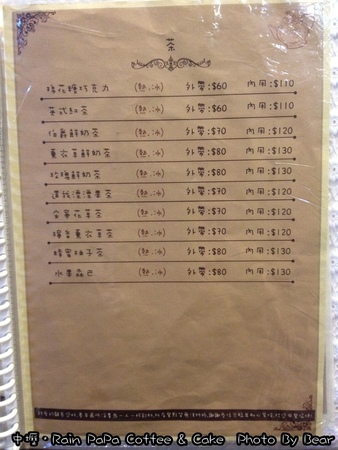 茶
棉花糖巧克力 (熱.冰) 外帶:$60 內用:$110
英式紅茶 (熱.冰) 外帶:$60 內用:$110
伯爵鮮奶茶 (熱.冰) 外帶:$70 內用:$120
薰衣草鮮奶茶 (熱.冰) 外帶:$80 內用:$130
玫瑰鮮奶茶 (熱.冰) 外帶:$80 內用:$130
還我漂漂果茶 (熱.冰) 外帶:$70 內用:$120
花草茶 (熱.冰) 外帶:$70 內用:$120
檸香薰衣草茶 (熱.冰) 外帶:$70 內用:$120
蜂蜜柚子茶 (熱.冰) 外帶:$80 內用:$130
水果森巴 (熱.冰) 外帶:$80 內用:$130
中壢·Rain PaPa Coffee & Cake Photo By Bear